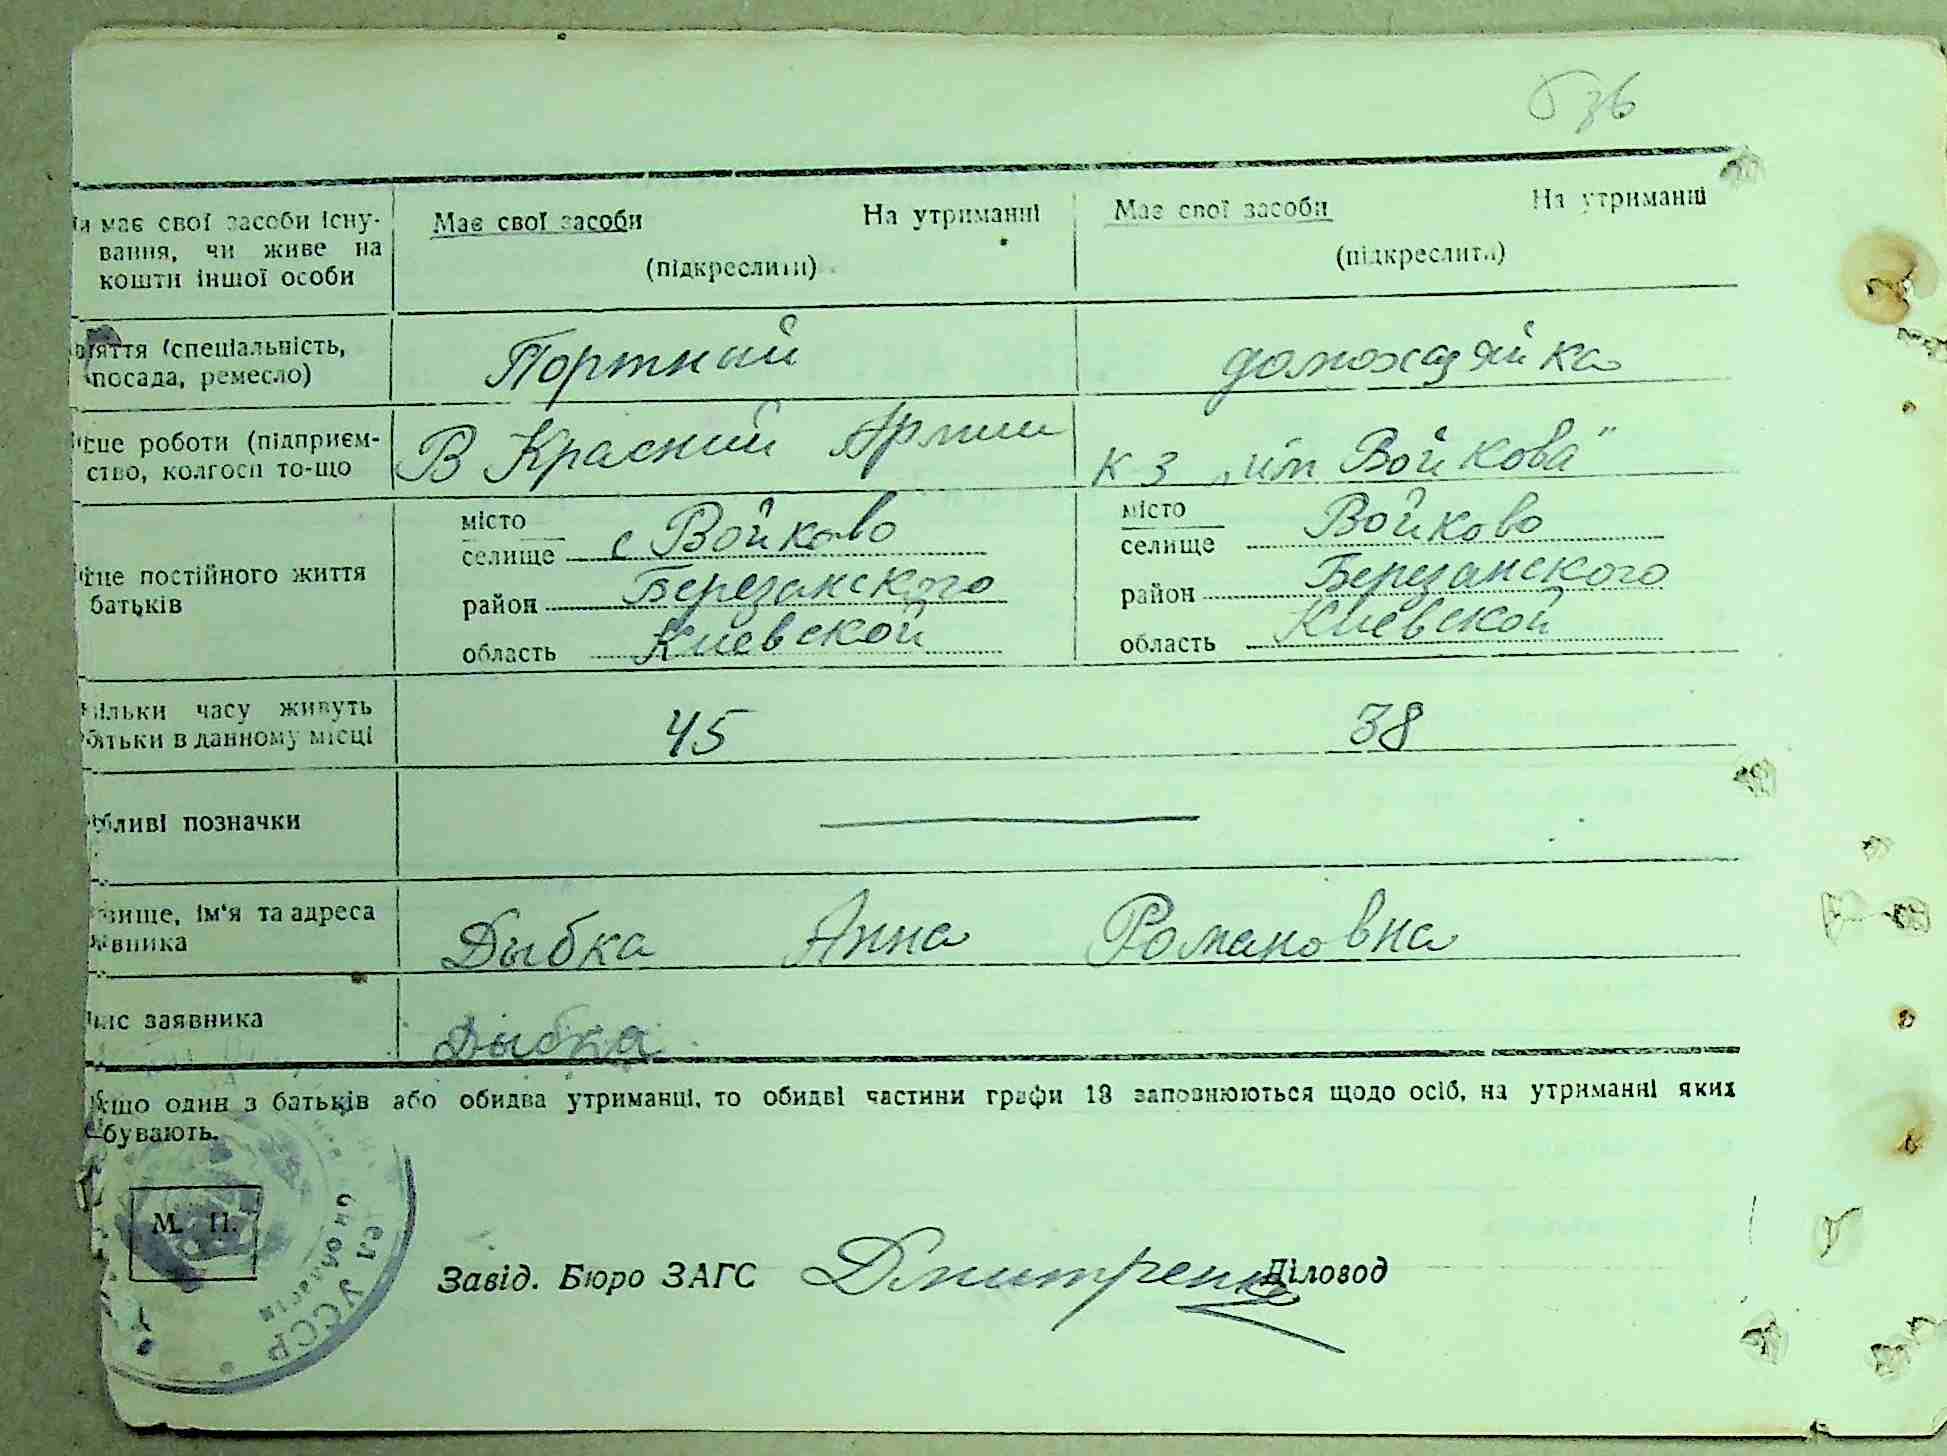 має свої засоби існу-
вання, чи живе на
кошти іншої особи
Має свої засоби На утриманні
(підкреслити)
Має свої засоби На утриманні
(підкреслити)
(спеціальність,
посада, ремесло)
Портний
домохазяйка
роботи (підприєм-
ство, колгосп то-що
В Красний Армии
к з „им Войкова"
постійного життя
батьків
місто
селище с Войково
район Березанского
область Киевской
місто
селище Войково
район Березанского
область Киевской
часу живуть
в данному місці
45
38
позначки
ім'я та адреса
Дыбка Анна Романовна
заявника
Дыбка
один з батьків або обидва утриманці, то обидві частини графи 13 заповнюються щодо осіб, на утриманні яких
М. П.
УССР
Завід. Бюро ЗАГС Дмитренко Діловод